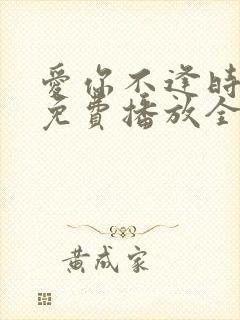 愛你不逢時
免費播放全
黄成家